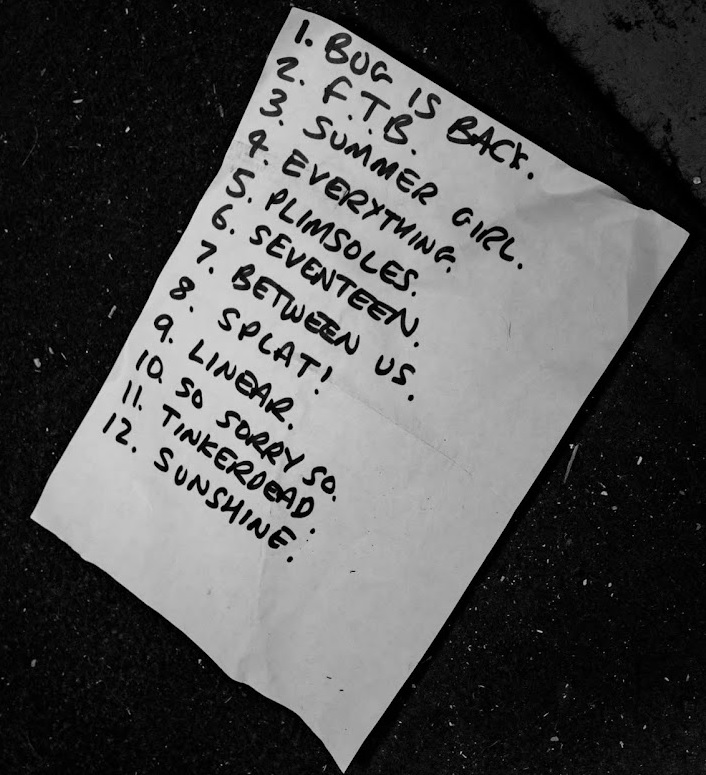 1. BUG IS BACK.
2. F.T.B.
3. SUMMER GIRL.
4. EVERYTHING.
5. PLIMSOLES.
6. SEVENTEEN.
7. BETWEEN US.
8. SPLAT!
9. LINEAR.
10. SO SORRY SO.
11. TINKERDEAD.
12. SUNSHINE.